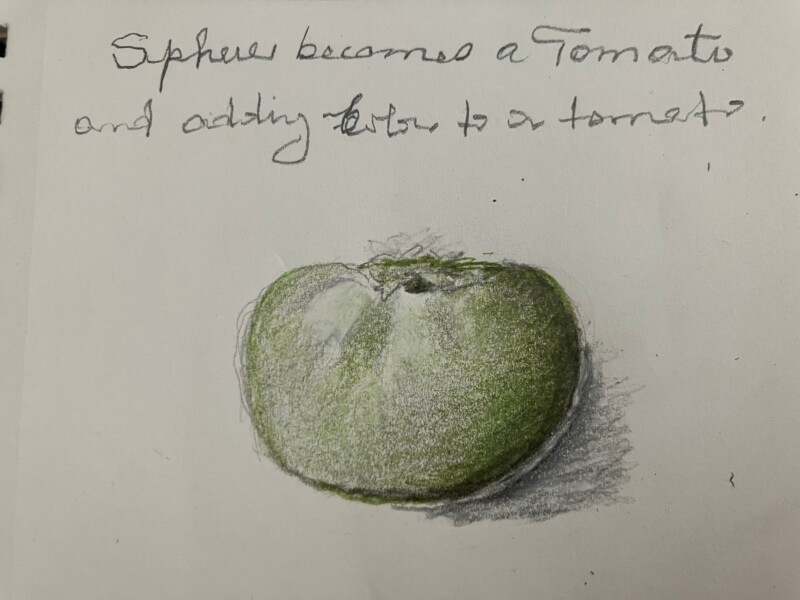 Sphere becomes a Tomato
and adding color to a tomato.